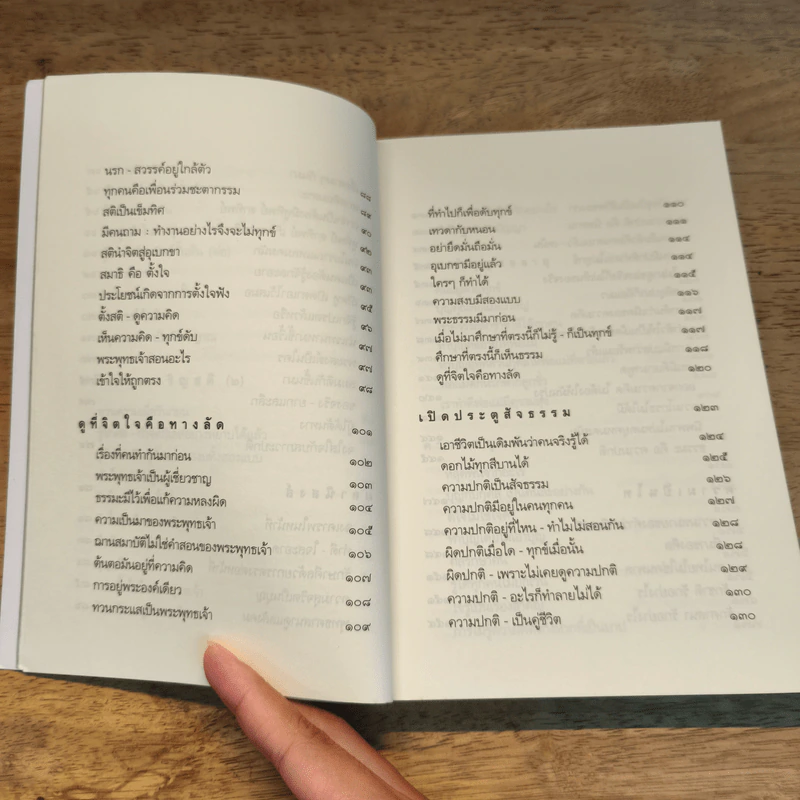 นรก - สวรรค์อยู่ใกล้ตัว ๘๘
ทุกคนคือเพื่อนร่วมชะตากรรม ๘๙
สติเป็นเข็มทิศ ๙๐
มีคนถาม : ทำงานอย่างไรจึงจะไม่ทุกข์ ๙๒
สตินำจิตสู่อุเบกขา ๙๓
สมาธิ คือ ตั้งใจ ๙๓
ประโยชน์เกิดจากการตั้งใจฟัง ๙๕
ตั้งสติ - ดูความคิด ๙๖
เห็นความคิด - ทุกข์ดับ ๙๗
พระพุทธเจ้าสอนอะไร ๙๗
เข้าใจให้ถูกตรง ๙๘
ดูที่จิตใจคือทางลัด ๑๐๑
เรื่องที่คนทำกันมาก่อน ๑๐๒
พระพุทธเจ้าเป็นผู้เชี่ยวชาญ ๑๐๓
ธรรมะมีไว้เพื่อแก้ความหลงผิด ๑๐๔
ความเป็นมาของพระพุทธเจ้า ๑๐๕
ฌานสมาบัติไม่ใช่คำสอนของพระพุทธเจ้า ๑๐๖
ต้นตอมันอยู่ที่ความคิด ๑๐๗
การอยู่พระองค์เดียว ๑๐๘
ทวนกระแสเป็นพระพุทธเจ้า ๑๐๙
ที่ทำไปก็เพื่อดับทุกข์ ๑๑๐
เทวดากับหนอน ๑๑๑
อย่ายึดมั่นถือมั่น ๑๑๔
อุเบกขามีอยู่แล้ว ๑๑๔
ใครๆ ก็ทำได้ ๑๑๕
ความสงบมีสองแบบ ๑๑๖
พระธรรมมีมาก่อน ๑๑๗
เมื่อไม่มาศึกษาที่ตรงนี้ก็ไม่รู้ - ก็เป็นทุกข์ ๑๑๗
ศึกษาที่ตรงนี้ก็เห็นธรรม ๑๑๘
ดูที่จิตใจคือทางลัด ๑๒๐
เปิดประตูสัจธรรม ๑๒๓
เอาชีวิตเป็นเดิมพันว่าคนจริงรู้ได้ ๑๒๔
ดอกไม้ทุกสีบานได้ ๑๒๕
ความปกติเป็นสัจธรรม ๑๒๖
ความปกติมีอยู่ในคนทุกคน ๑๒๗
ความปกติอยู่ที่ไหน - ทำไมไม่สอนกัน ๑๒๘
ผิดปกติเมื่อใด - ทุกข์เมื่อนั้น ๑๒๘
ผิดปกติ - เพราะไม่เคยดูความปกติ ๑๒๙
ความปกติ - อะไรก็ทำลายไม่ได้ ๑๓๐
ความปกติ - เป็นคู่ชีวิต ๑๓๐